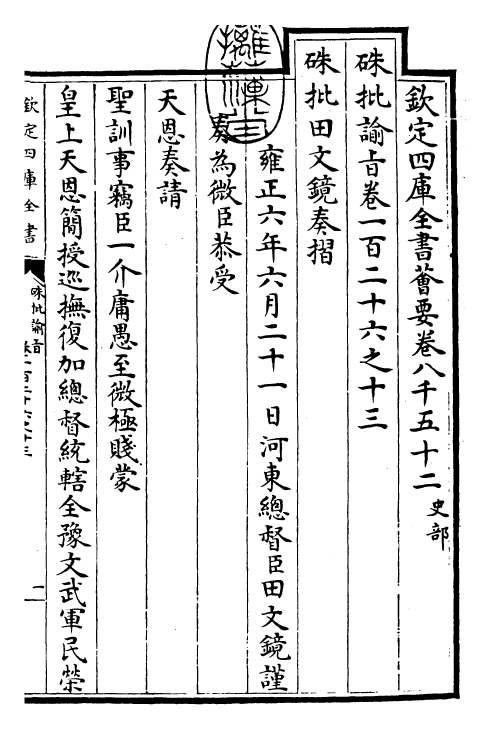 欽定四庫全書薈要卷八千五十二 史部
硃批諭旨卷一百二十六之十三
硃批田文鏡奏摺
雍正六年六月二十一日河東總督臣田文鏡謹
奏為微臣恭受
天恩奏請
聖訓事竊臣一介庸愚至微極賤蒙
皇上天恩簡授巡撫復加總督統轄全豫文武軍民榮
欽定四庫全書
硃批諭旨
卷一百二十六之十三
一